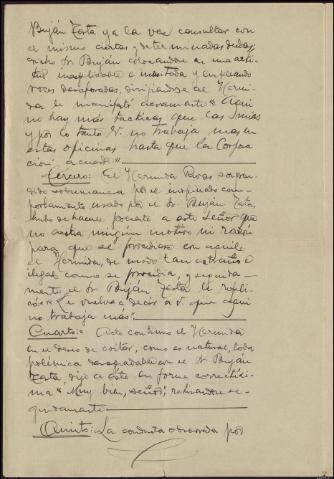 Buján Zasta y a la vez consultar con
el mismo ciertas y determinadas dudas;
dicho Sr. Buján colocándose en una acti-
tud inexplicable e inusitada y empleando
voces desaforadas, dirigiéndose al Hermi-
da le manifestó claramente "Aquí
no hay más tácticas que las mías
y por lo tanto V. no trabaja más en
estas oficinas hasta que la Corpora-
ción acuerde"
Tercero: El Hermida Rivas sorpren-
dido sobremanera por el inopinado com-
portamiento usado por el Sr. Buján Zasta,
hubo de hacer presente a este Señor que
no existía ningún motivo ni razón
para que se procediese con aquel
el Hermida, de modo tan extraño e
ilegal como se procedía, y nuevamente
el Sr. Buján Zasta le repli-
có: "Le vuelvo a decir a V. que aquí
no trabaja más."
Cuarto: Ante esto el Hermida
en el deseo de evitar, como es natural, toda
polémica desagradable con el Sr. Buján
Zasta, dijo a éste en forma correctísi-
ma "Muy bien, señor", retirándose se-
guidamente.
Quinto: La conducta observada por